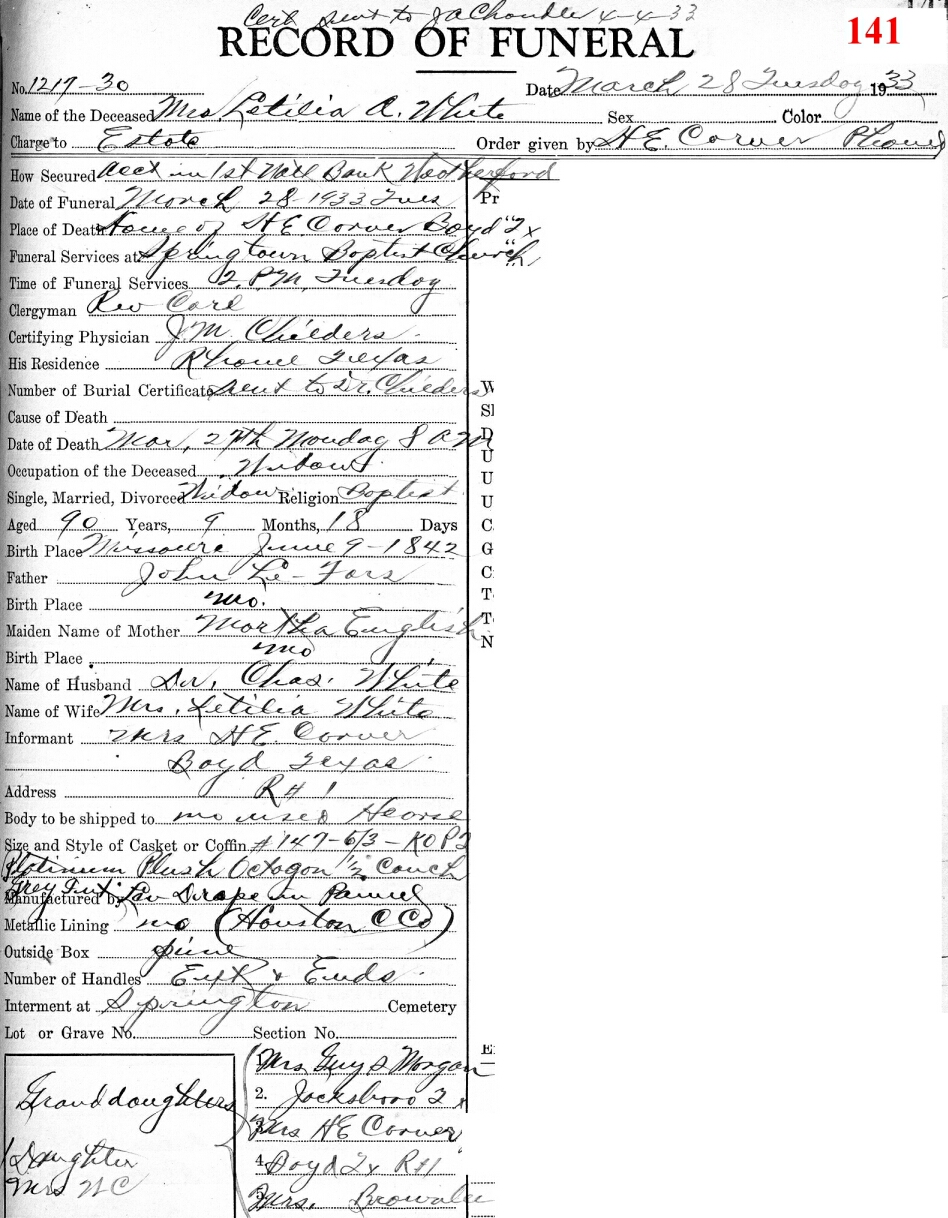 Cert sent to JA Chandler 4-4-33
RECORD OF FUNERAL
141
No. 1217-30 Date March 28 Tuesday 1933
Name of the Deceased Mrs Letilia A. White Sex Color
Charge to Estate Order given by H E. Corver Phone
How Secured acct in 1st Natl Bank Weatherford
Date of Funeral March 28-1933 Tues Pr
Place of Death Home of H E Corver Boyd Tx
Funeral Services at Springtown Baptist Church
Time of Funeral Services 2. P.M, Tuesday
Clergyman Rev Card
Certifying Physician J.M. Childers
His Residence Rhome Texas
Number of Burial Certificate sent to Dr. Childers W
Cause of Death Sl
Date of Death Mar, 27th Monday 8 AM D
Occupation of the Deceased Widow U
Single, Married, Divorced Widow Religion Baptist U
Aged 90 Years, 9 Months, 18 Days C
Birth Place Missouri June 9-1842 G
Father John Le-Fors C
Birth Place mo. T
Maiden Name of Mother Martha English T
Birth Place mo N
Name of Husband Dr, Chas. White
Name of Wife Mrs. Letilia White
Informant Mrs H E. Corver
Boyd Texas
Address R# 1
Body to be shipped to no used Hearse
Size and Style of Casket or Coffin #147-6/3-
Platinum Plush Octogon 1/2 Couch
Grey Int
Manufactured by Lav Drape in Pannel
Metallic Lining no (Houston C Co)
Outside Box pine
Number of Handles Ext & Ends
Interment at Springtown Cemetery
Lot or Grave No. Section No.
E
Granddaughters
1. Mrs Guy S Morgan
2. Jacksboro Tx
3. Mrs H E Corver
Daughter
4. Boyd Tx R#1
Mrs W C
5. Mrs. Brownlee